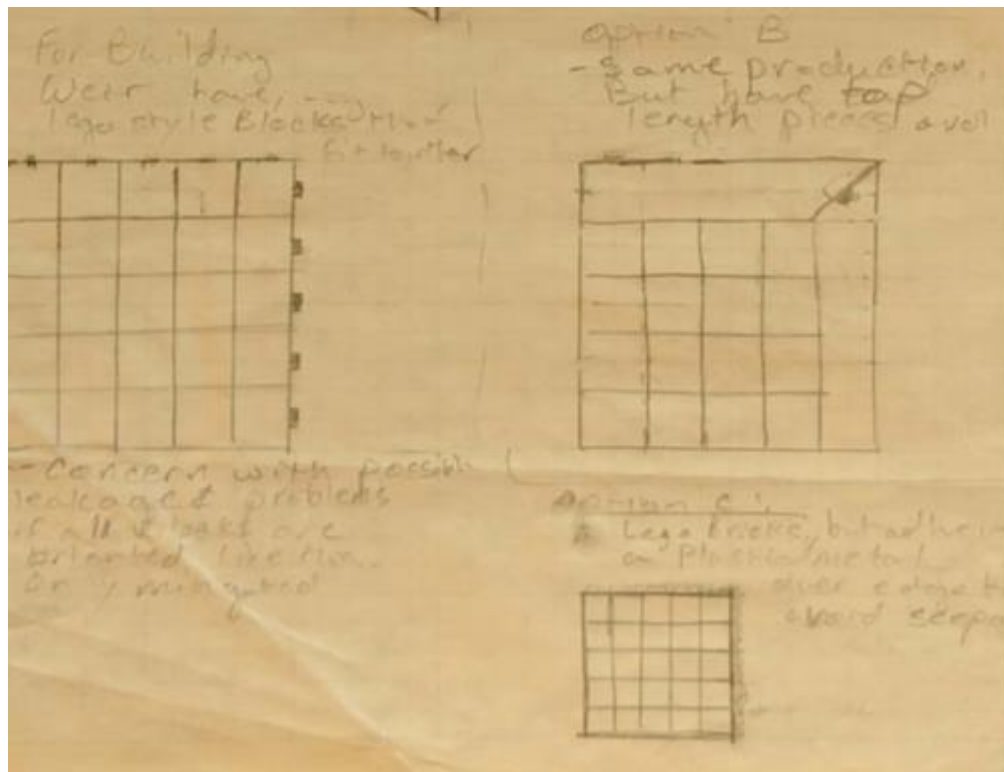 For Building
Weir have,
lego style Blocks that
fit together
- Concern with possible
leakage & problems
if all blocks are
oriented like this.
Option B
- Same production,
But have top
length pieces avail
Option C:
Lego bricks, but adhe
on Plastic/metal
over edge t
avoid seepa